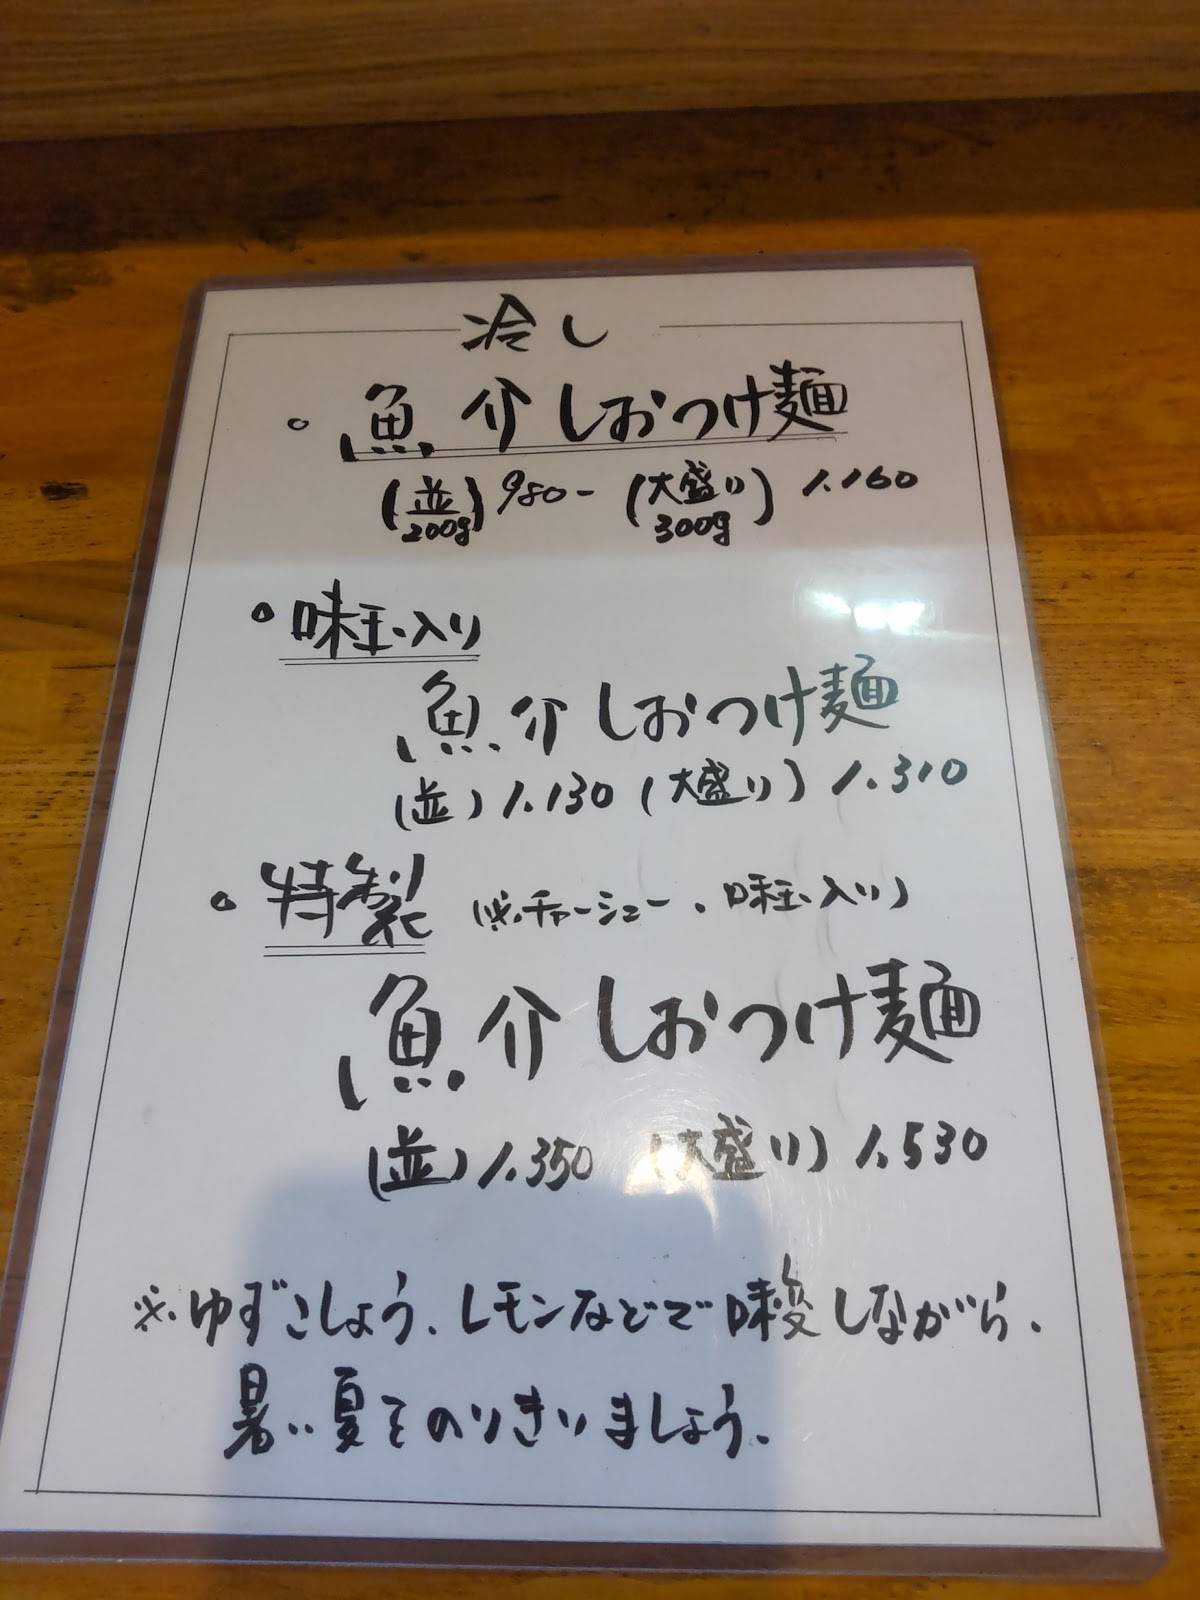 冷し
。魚介しおつけ麺
(並)980- (大盛り) 1.160
200g 300g
。味玉入り
魚介しおつけ麺
(並) 1.130 (大盛り) 1.310
。特製 (※チャーシュー、味玉入り)
魚介しおつけ麺
(並) 1.350 (大盛り) 1.530
※ゆずこしょう、レモンなどで味変しながら、
暑い夏をのりきりましょう。